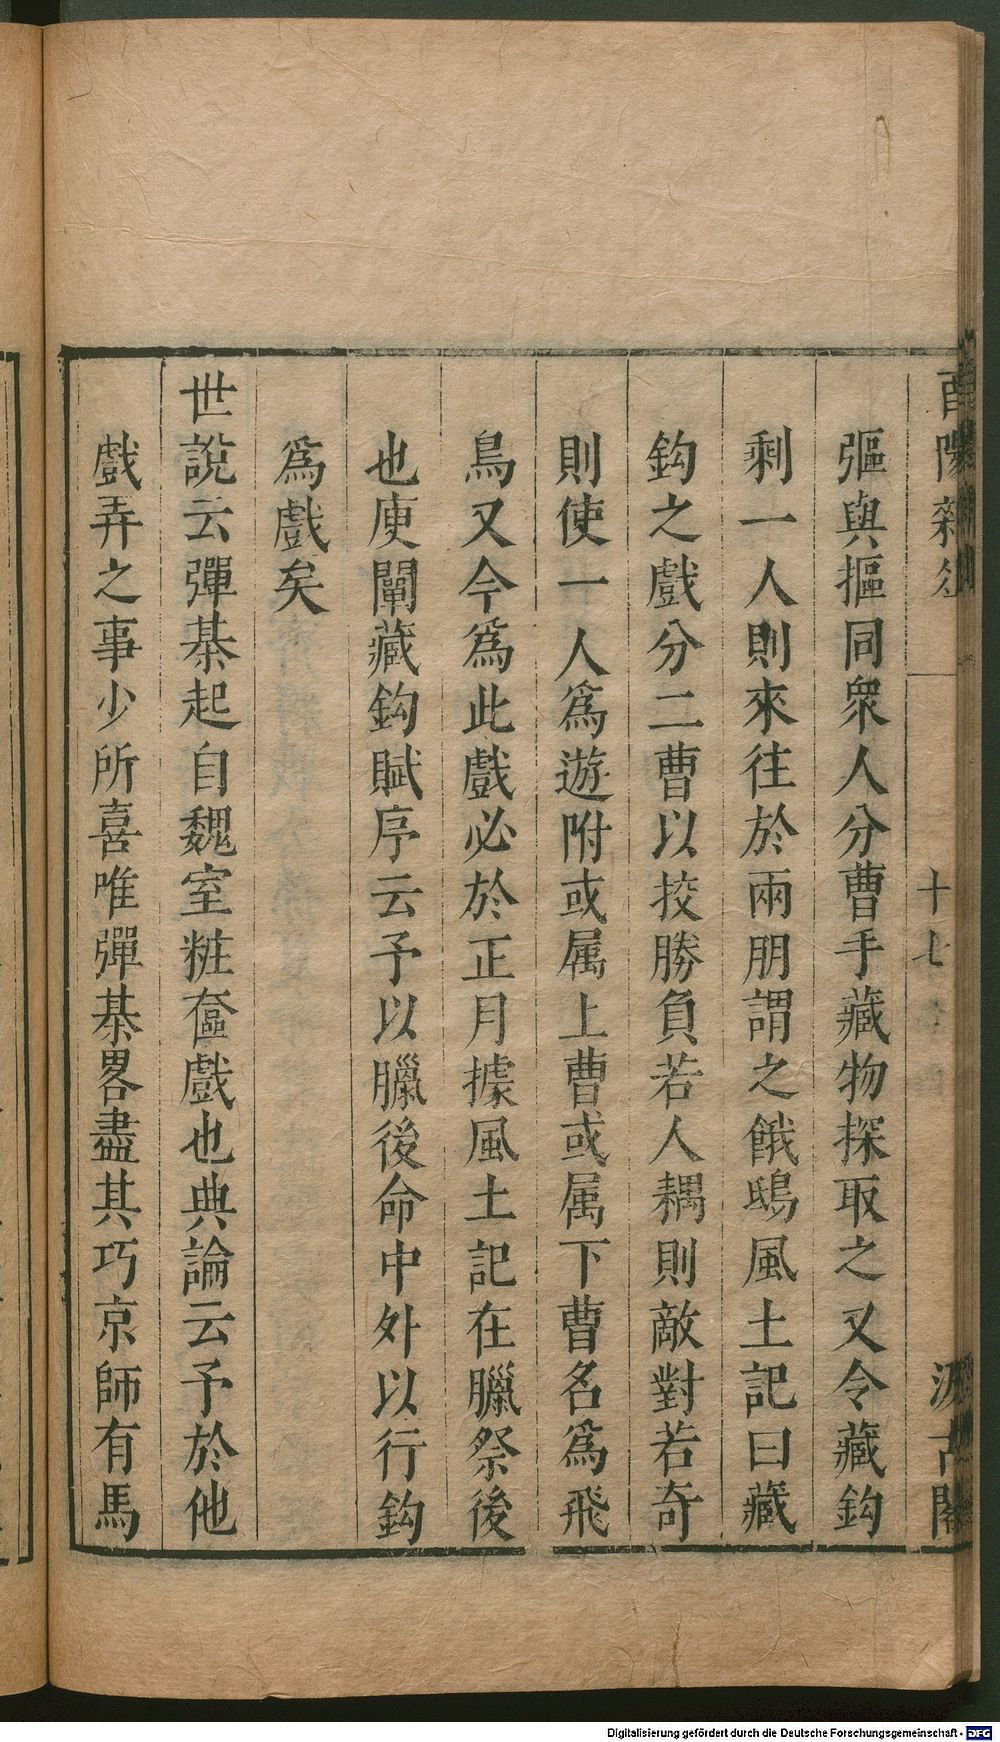 酉陽雜俎
十七
汲古閣
彄與摳同衆人分曹手藏物探取之又令藏鈎
剩一人則來往於兩朋謂之餓鴟風土記曰藏
鈎之戲分二曹以挍勝負若人耦則敵對若奇
則使一人爲遊附或属上曹或属下曹名爲飛
鳥又今爲此戲必於正月據風土記在臘祭後
也庾闡藏鈎賦序云予以臘後命中外以行鈎
爲戲矣
世說云彈棊起自魏室粧奩戲也典論云予於他
戲弄之事少所喜唯彈棊畧盡其巧京師有馬
Digitalisierung gefördert durch die Deutsche Forschungsgemeinschaft - DFG